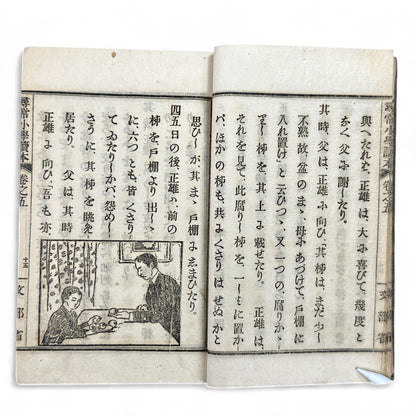 尋常小學讀本 卷之五
文部省
與へたれば、正雄は、大に喜びて、幾度と
なく父に謝したり。
其時、父は、正雄に向ひ、其柿は、まだ少し
不熟故、盆のまゝ、母にあづけて、戸棚に
入れ置けと云ひつゝ、又一つの腐りかゝ
りし柿を其上に載せたり。正雄は、
それを見て、此腐りし柿を一しよに置か
ば、ほかの柿も、共にくさりはせぬかと
思ひしが、其まゝ戸棚にしまひたり。
四五日の後、正雄は、前の
柿を戸棚より出しゝ
に、六つとも皆くさり
てゐたりしかば、怨めし
さうに、其柿を眺め
居たり。父は其時
正雄に向ひ、吾も亦
尋常小學讀本 卷之五
十三
文部省